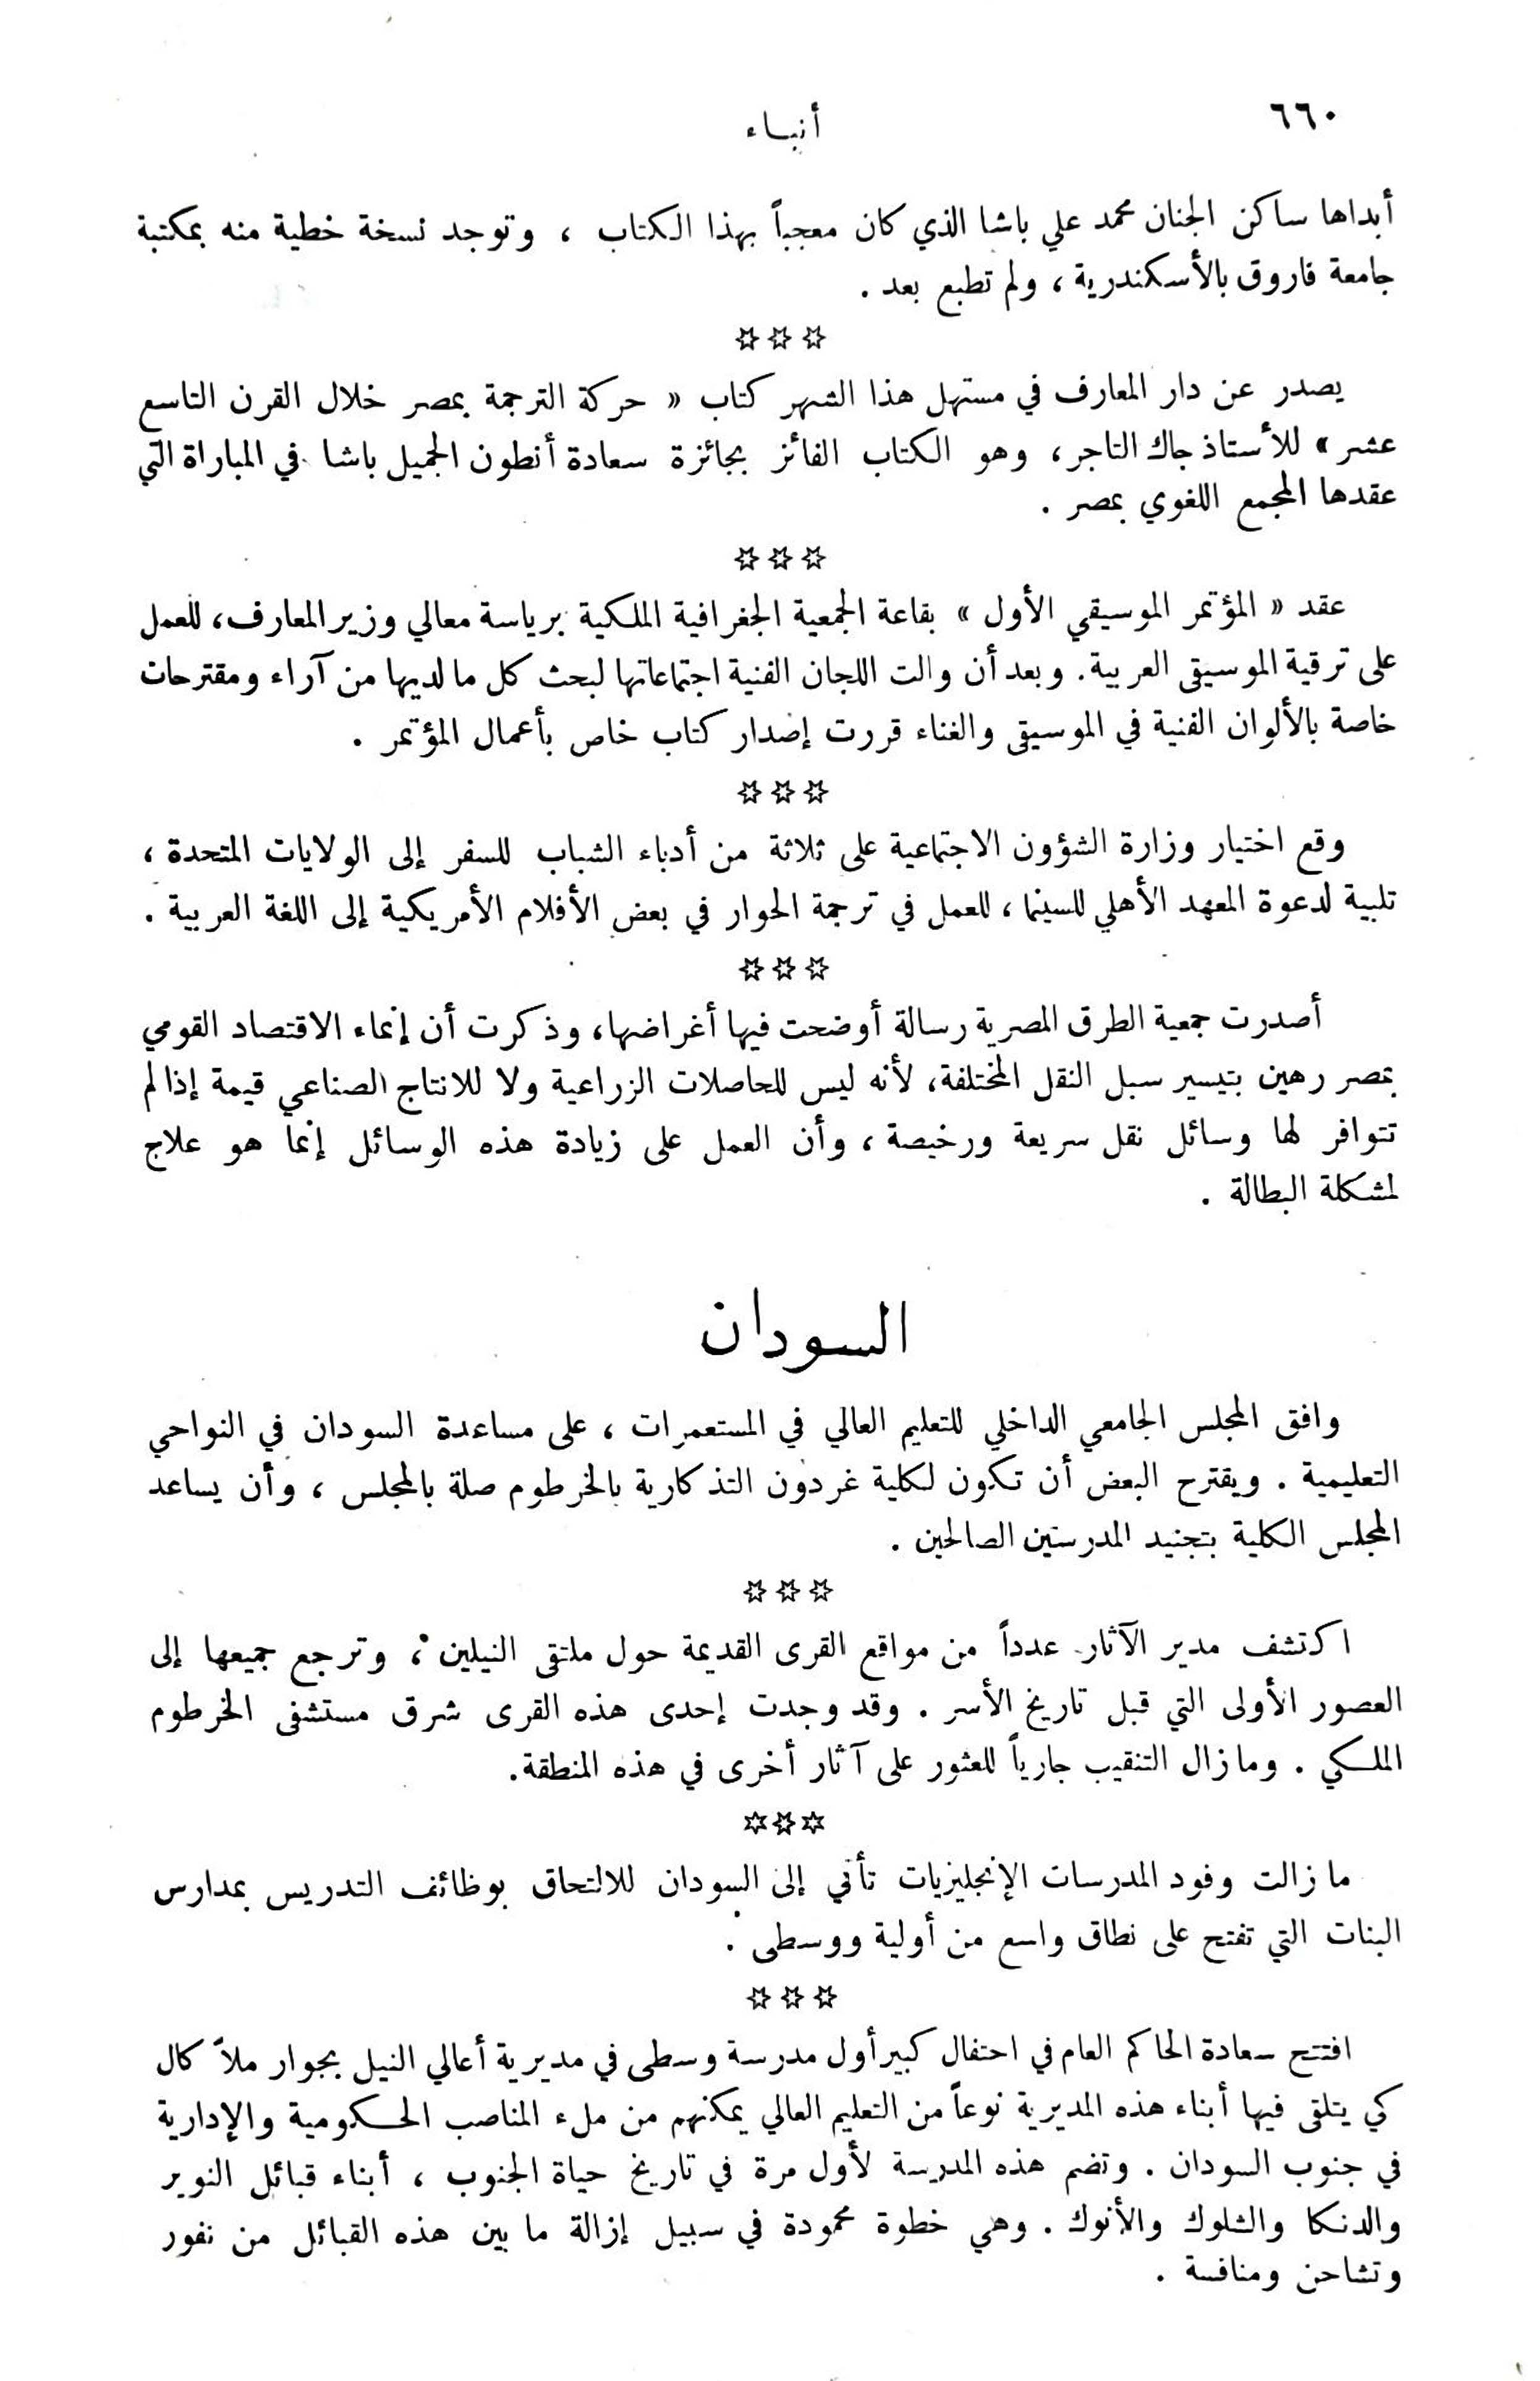 ٦٦٠
أنباء
أبداها ساكن الجنان محمد علي باشا الذي كان معجباً بهذا الكتاب ، وتوجد نسخة خطية منه بمكتبة
جامعة فاروق بالأسكندرية ، ولم تطبع بعد .
☆☆☆
يصدر عن دار المعارف في مستهل هذا الشهر كتاب « حركة الترجمة بمصر خلال القرن التاسع
عشر » للأستاذ جاك التاجر، وهو الكتاب الفائز بجائزة سعادة أنطون الجميل باشا في المباراة التي
عقدها المجمع اللغوي بمصر .
☆☆☆
عقد « المؤتمر الموسيقي الأول » بقاعة الجمعية الجغرافية الملكية برياسة معالي وزير المعارف، للعمل
على ترقية الموسيقى العربية. وبعد أن والت اللجان الفنية اجتماعاتها لبحث كل ما لديها من آراء ومقترحات
خاصة بالألوان الفنية في الموسيقى والغناء قررت إصدار كتاب خاص بأعمال المؤتمر .
☆☆☆
وقع اختيار وزارة الشؤون الاجتماعية على ثلاثة من أدباء الشباب للسفر إلى الولايات المتحدة ،
تلبية لدعوة المعهد الأهلي للسينما ، للعمل في ترجمة الحوار في بعض الأفلام الأمريكية إلى اللغة العربية .
☆☆☆
أصدرت جمعية الطرق المصرية رسالة أوضحت فيها أغراضها، وذكرت أن إنماء الاقتصاد القومي
بمصر رهين بتيسير سبل النقل المختلفة، لأنه ليس للحاصلات الزراعية ولا للانتاج الصناعي قيمة إذا لم
تتوافر لها وسائل نقل سريعة ورخيصة ، وأن العمل على زيادة هذه الوسائل إنما هو علاج
لمشكلة البطالة .
السودان
وافق المجلس الجامعي الداخلي للتعليم العالي في المستعمرات ، على مساعدة السودان في النواحي
التعليمية . ويقترح البعض أن تكون لكلية غردون التذكارية بالخرطوم صلة بالمجلس ، وأن يساعد
المجلس الكلية بتجنيد المدرسين الصالحين .
☆☆☆
اكتشف مدير الآثار عدداً من مواقع القرى القديمة حول ملتقى النيلين ، وترجع جميعها إلى
العصور الأولى التي قبل تاريخ الأسر . وقد وجدت إحدى هذه القرى شرق مستشفى الخرطوم
الملكي . وما زال التنقيب جارياً للعثور على آثار أخرى في هذه المنطقة.
☆☆☆
ما زالت وفود المدرسات الإنجليزيات تأتي إلى السودان للالتحاق بوظائف التدريس بمدارس
البنات التي تفتح على نطاق واسع من أولية ووسطى .
☆☆☆
افتتح سعادة الحاكم العام في احتفال كبير أول مدرسة وسطى في مديرية أعالي النيل بجوار ملاّ كال
كي يتلقى فيها أبناء هذه المديرية نوعاً من التعليم العالي يمكنهم من ملء المناصب الحكومية والإدارية
في جنوب السودان . وتضم هذه المدرسة لأول مرة في تاريخ حياة الجنوب ، أبناء قبائل النوير
والدنكا والشلوك والأنوك . وهي خطوة محمودة في سبيل إزالة ما بين هذه القبائل من نفور
وتشاحن ومنافسة .